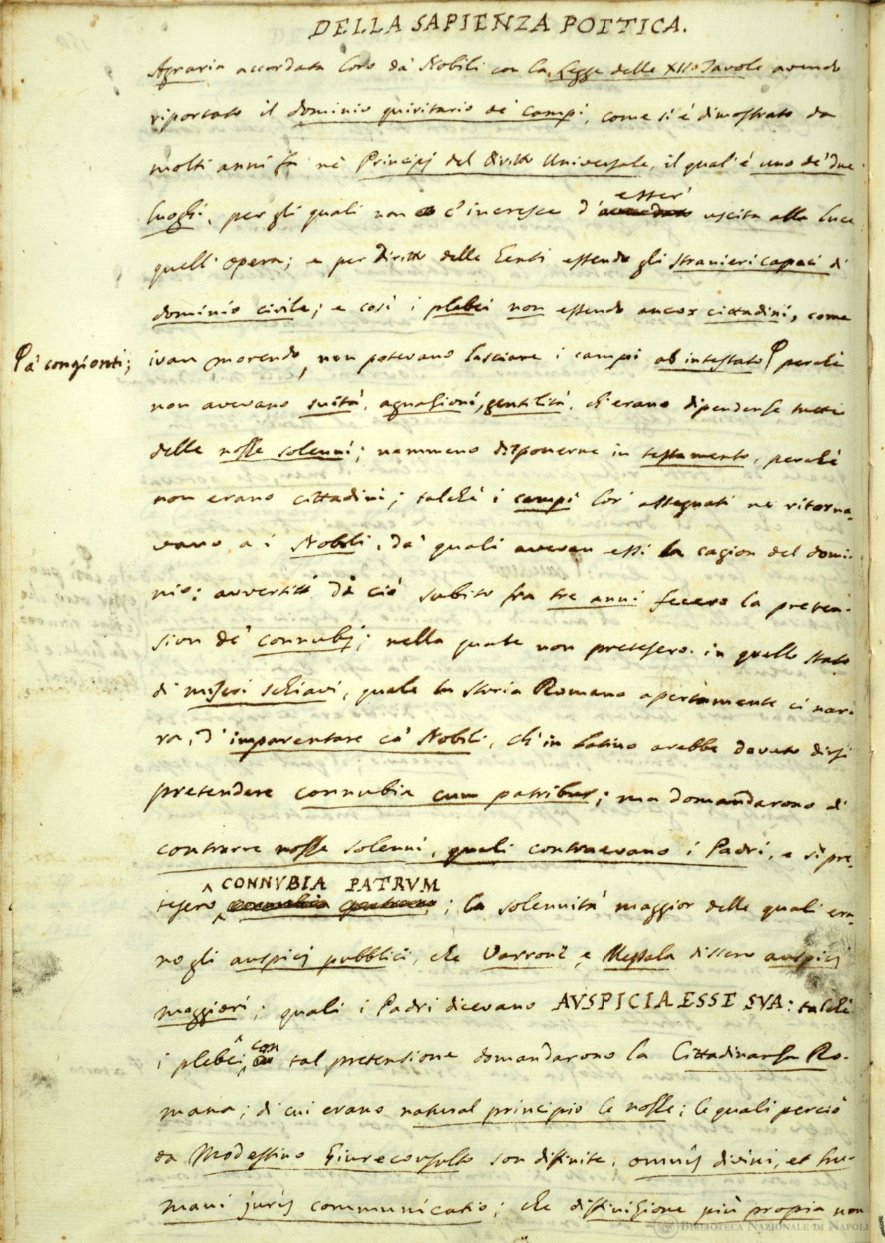 DELLA SAPIENZA POETICA.
Agraria accordata loro da' Nobili con la Legge delle XII. Tavole avendo
riportato il dominio quiritario de' campi, come si è dimostrato da
molti anni fa ne' Principj del Diritto Universale, il qual' è uno de' due
luoghi, per gli quali non c'incresce d' esser' uscita alla luce
quell' opera; e per Diritto delle Genti essendo gli stranieri capaci di
dominio civile; e così i plebei non essendo ancor cittadini, come
ivan morendo, non potevano lasciare i campi ab intestato perchè
a' congionti;
non avevano suità, agnazioni, gentilità, ch'erano dipendenze tutte
delle nozze solenni; nemmeno disponerne in testamento, perchè
non erano cittadini; talchè i campi lor' assegnati ne ritorna-
vano a i Nobili, da' quali avevan essi la cagion del domi-
nio: avvertiti di ciò subito fra tre anni fecero la preten-
sion de' connubj; nella quale non pretesero in quello stato
di miseri schiavi, quale la storia Romana apertamente ci nar-
ra, d' imparentare co' Nobili, ch' in latino arebbe dovuto dirsi
pretendere connubia cum patribus; ma domandarono di
contrarre nozze solenni, quali contraevano i Padri, e sì pre-
tesero CONNVBIA PATRVM; la solennità maggior delle quali era-
no gli auspicj pubblici, che Varrone e Messala dissero auspicj
maggiori; quali i Padri dicevano AVSPICIA ESSE SVA: talchè
i plebei con tal pretensione domandarono la Cittadinanza Ro-
mana; di cui erano natural principio le nozze; le quali perciò
da Modestino Giureconsulto son diffinite, omnis divini, et hu-
mani juris communicatio; che diffinizione più propria non
BIBLIOTECA NAZIONALE DI NAPOLI